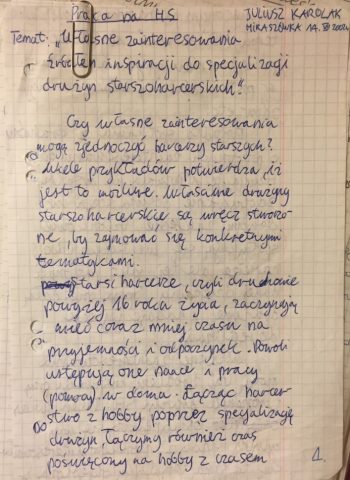 Praca na HS
JULIUSZ KAROLAK
MIKASZÓWKA 14.VII 2002r
Temat: „Własne zainteresowania
źródłem inspiracji do specjalizacji
drużyn starszoharcerskich."
Czy własne zainteresowania
mogą zjednoczyć harcerzy starszych?
Wiele przykładów potwierdza, iż
jest to możliwe. Właśnie drużyny
starszoharcerskie są wręcz stworzo-
ne, by zajmować się konkretnymi
tematykami.
Starsi harcerze, czyli druhowie
powyżej 16 roku życia, zaczynają
mieć coraz mniej czasu na
przyjemności i odpoczynek. Powoli
ustępują one nauce i pracy
(pomocy) w domu. Łącząc harcer-
stwo z hobby poprzez specjalizację
drużyn, łączymy również czas
poświęcony na hobby z czasem
1.